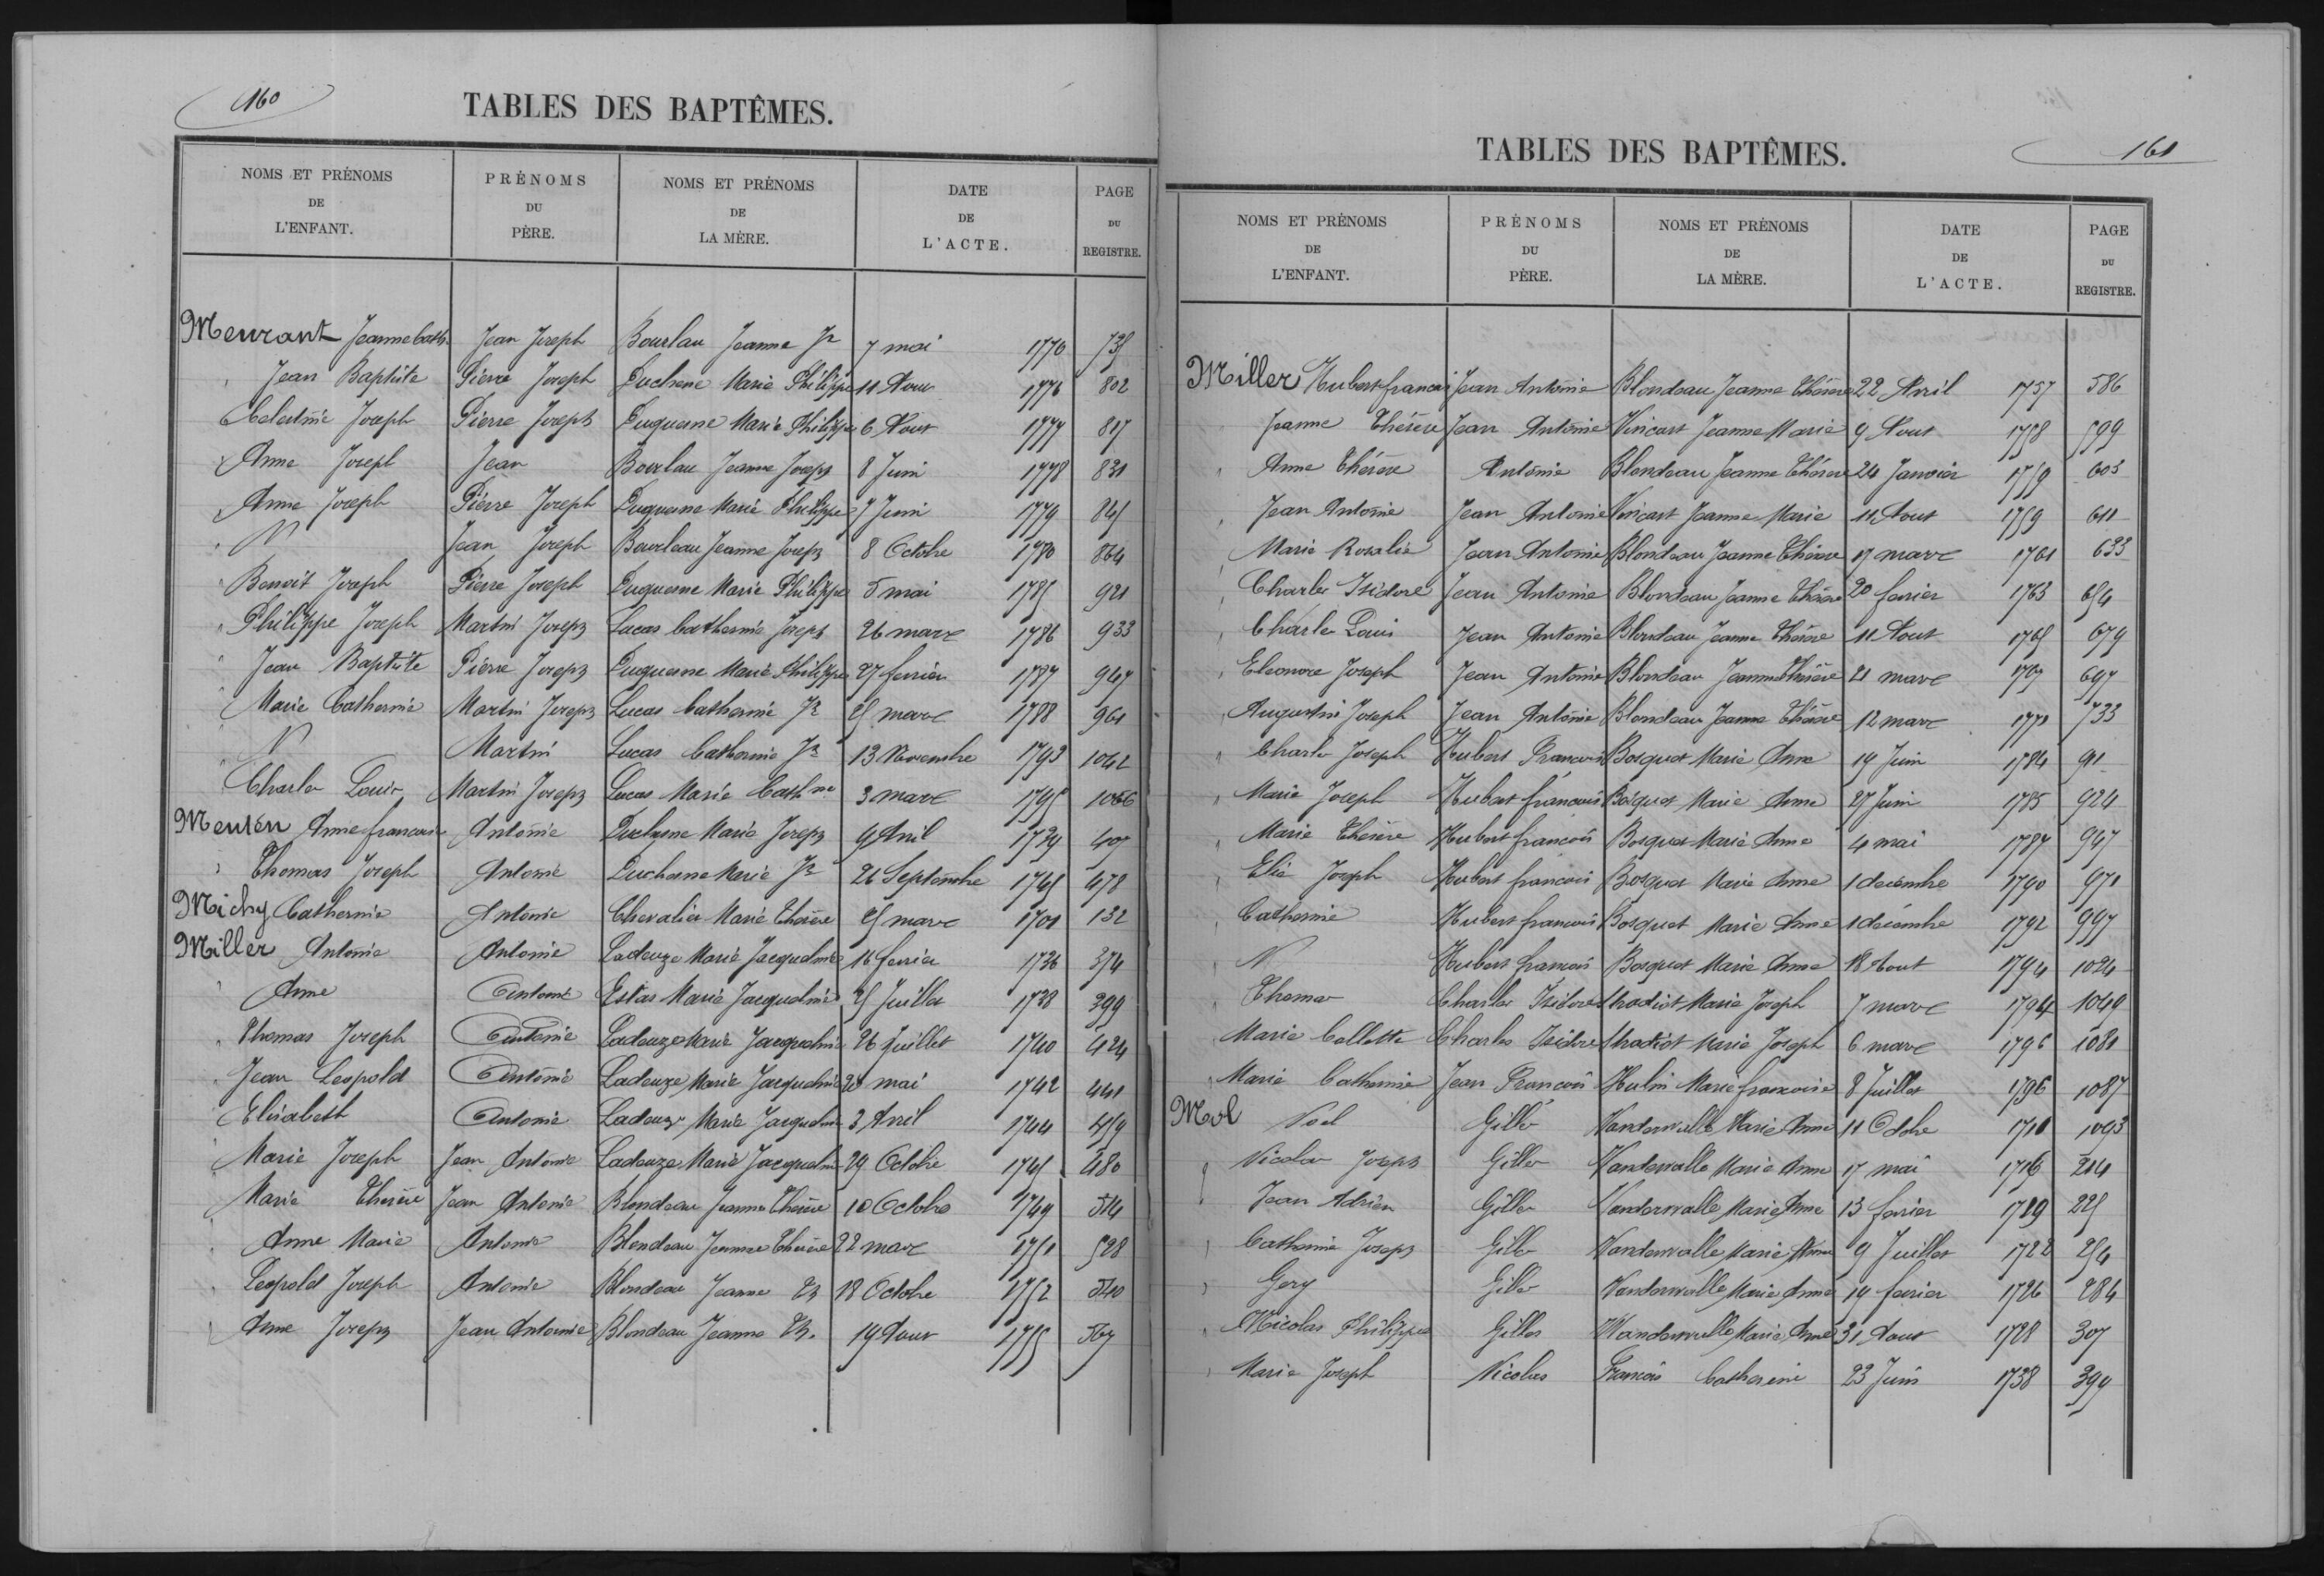 160
TABLES DES BAPTÊMES.
NOMS ET PRÉNOMS DE L'ENFANT. PRÉNOMS DU PÈRE. NOMS ET PRÉNOMS DE LA MÈRE. DATE DE L'ACTE. PAGE DU REGISTRE.
Meurant Jeanne Cath. Jean Joseph Bourlau Jeanne Jh 7 mai 1770 735
" Jean Baptiste Pierre Joseph Duchene Marie Philippe 11 Aout 1776 802
Celestine Joseph Pierre Joseph Duquesne Marie Philippe 6 Aout 1777 817
" Anne Joseph Jean Bourlau Jeanne Joseph 8 Juin 1778 831
" Anne Joseph Pierre Joseph Duquesne Marie Philippe 7 Juin 1779 845
" N Jean Joseph Bourleau Jeanne Joseph 8 Octobre 1780 864
" Benoit Joseph Pierre Joseph Duquesne Marie Philippe 5 mai 1785 921
" Philippe Joseph Martin Joseph Lucas Catherine Joseph 26 mars 1786 933
" Jean Baptiste Pierre Joseph Duquesne Marie Philippe 27 fevrier 1787 947
" Marie Catherine Martin Joseph Lucas Catherine Jh 25 mars 1788 961
" N Martin Lucas Catherine Jh 13 Novembre 1793 1042
" Charles Louis Martin Joseph Lucas Marie Cathne 3 mars 1795 1066
Meurén Anne francoise Antoine Duchesne Marie Joseph 9 Avril 1739 407
" Thomas Joseph Antoine Duchesne Marie Jh 26 Septembre 1745 478
Michy Catherine Antoine Chevalier Marie Thérèse 25 mars 1701 132
Miller Antoine Antoine Ladeuze Marie Jacqueline 16 fevrier 1736 374
" Anne Antoine Estas Marie Jacqueline 25 Juillet 1738 399
" Thomas Joseph Antoine Ladeuze Marie Jacqueline 26 Juillet 1740 424
" Jean Leopold Antoine Ladeuze Marie Jacqueline 20 mai 1742 441
" Elisabeth Antoine Ladeuze Marie Jacqueline 3 Avril 1744 459
" Marie Joseph Jean Antoine Ladeuze Marie Jacqueline 29 Octobre 1745 480
" Marie Thérèse Jean Antoine Blondeau Jeanne Thérèse 10 Octobre 1749 514
" Anne Marie Antoine Blondeau Jeanne Thérèse 22 mars 1751 528
" Leopold Joseph Antoine Blondeau Jeanne Th 18 Octobre 1752 540
" Anne Joseph Jean Antoine Blondeau Jeanne Th. 19 Aout 1755 567
161
TABLES DES BAPTÊMES.
NOMS ET PRÉNOMS DE L'ENFANT. PRÉNOMS DU PÈRE. NOMS ET PRÉNOMS DE LA MÈRE. DATE DE L'ACTE. PAGE DU REGISTRE.
Miller Hubert francois Jean Antoine Blondeau Jeanne Thérèse 22 Avril 1757 586
Jeanne Thérèse Jean Antoine Vincart Jeanne Marie 9 Aout 1758 599
" Anne Thérèse Antoine Blondeau Jeanne Thérèse 24 Janvier 1759 603
" Jean Antoine Jean Antoine Vincart Jeanne Marie 11 Aout 1759 611
" Marie Rosalie Jean Antoine Blondeau Jeanne Thérèse 17 mars 1761 633
" Charles Isidore Jean Antoine Blondeau Jeanne Thérèse 20 fevrier 1763 654
" Charles Louis Jean Antoine Blondeau Jeanne Thérèse 11 Aout 1765 679
" Eleonore Joseph Jean Antoine Blondeau Jeanne Thérèse 21 mars 1767 697
" Augustin Joseph Jean Antoine Blondeau Jeanne Thérèse 12 mars 1770 733
" Charles Joseph Hubert Francois Bosquet Marie Anne 19 Juin 1784 911
" Marie Joseph Hubert francois Bosquet Marie Anne 27 Juin 1785 924
" Marie Thérèse Hubert francois Bosquet Marie Anne 4 mai 1787 947
" Elie Joseph Hubert francois Bosquet Marie Anne 1 decembre 1790 971
" Catherine Hubert francois Bosquet Marie Anne 1 decembre 1792 997
" N Hubert francois Bosquet Marie Anne 18 Aout 1794 1024
" Thomas Charles Isidore Stradiot Marie Joseph 7 mars 1794 1049
" Marie Collette Charles Isidore Stradiot Marie Joseph 6 mars 1796 1081
" Marie Catherine Jean Francois Hulin Marie francoise 8 Juillet 1796 1087
Mol Noel Gilles Vanderwalle Marie Anne 11 Octobre 1710 1093
" Nicolas Joseph Gilles Vanderwalle Marie Anne 17 mai 1716 214
" Jean Adrien Gilles Vanderwalle Marie Anne 13 fevrier 1719 225
" Catherine Joseph Gilles Vanderwalle Marie Anne 9 Juillet 1722 254
" Gery Gilles Vanderwalle Marie Anne 19 fevrier 1726 284
" Nicolas Philippe Gilles Vanderwalle Marie Anne 31 Aout 1728 307
" Marie Joseph Nicolas Francois Catherine 23 Juin 1738 399